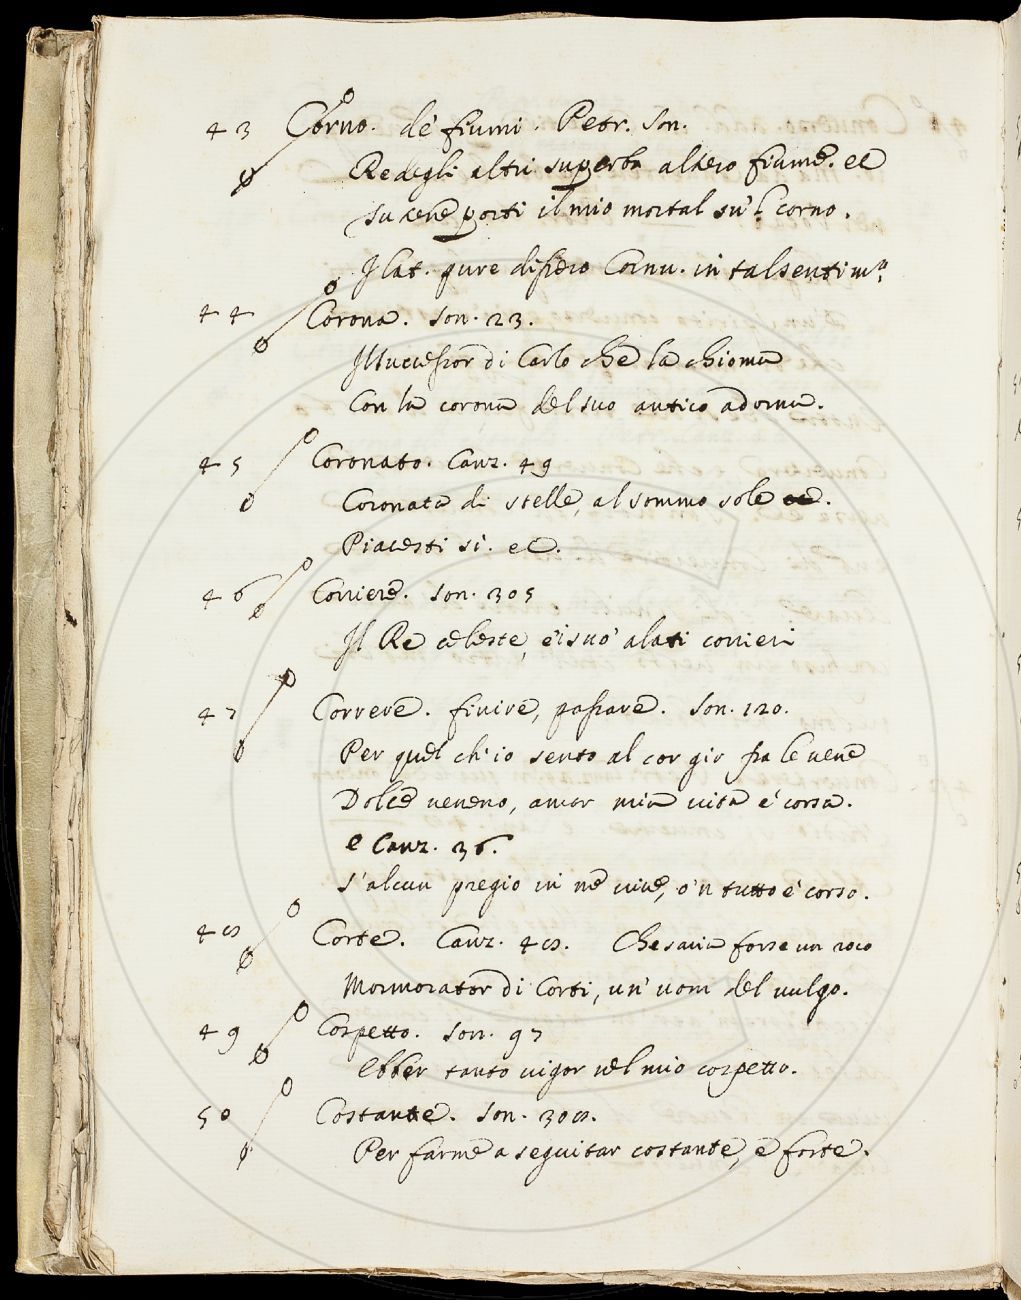 43 Corno. de' fiumi. Petr. Son.
Re degli altri superbo altero fiume. ec
porti il mio mortal su'l corno.
Il lat. pure disiero Cornu. in tal sentim.to
44 Corona. Son. 23.
Il successor di Carlo che la chioma
Con la corona del suo antico adorna.
45 Coronato. Canz. 49
Coronata di stelle, al sommo sole
Piacesti sì. ec.
46 Corriere. Son. 305
Il Re celeste, e i suo' alati corrieri
47 Correre. finire, passare. Son. 120.
Per quel ch'io sento al cor gir fra le vene
Dolce veneno, amor mia vita è corsa.
e Canz. 36.
s'alcun pregio in me vive, o 'n tutto è corso.
48 Corte. Canz. 48. Che saria forse un roco
Mormorator di Corti, un' uom del vulgo.
49 Cospetto. Son. 97
Ebber tanto vigor nel mio cospetto.
50 Costante. Son. 308.
Per farme a seguitar costante, e forte.